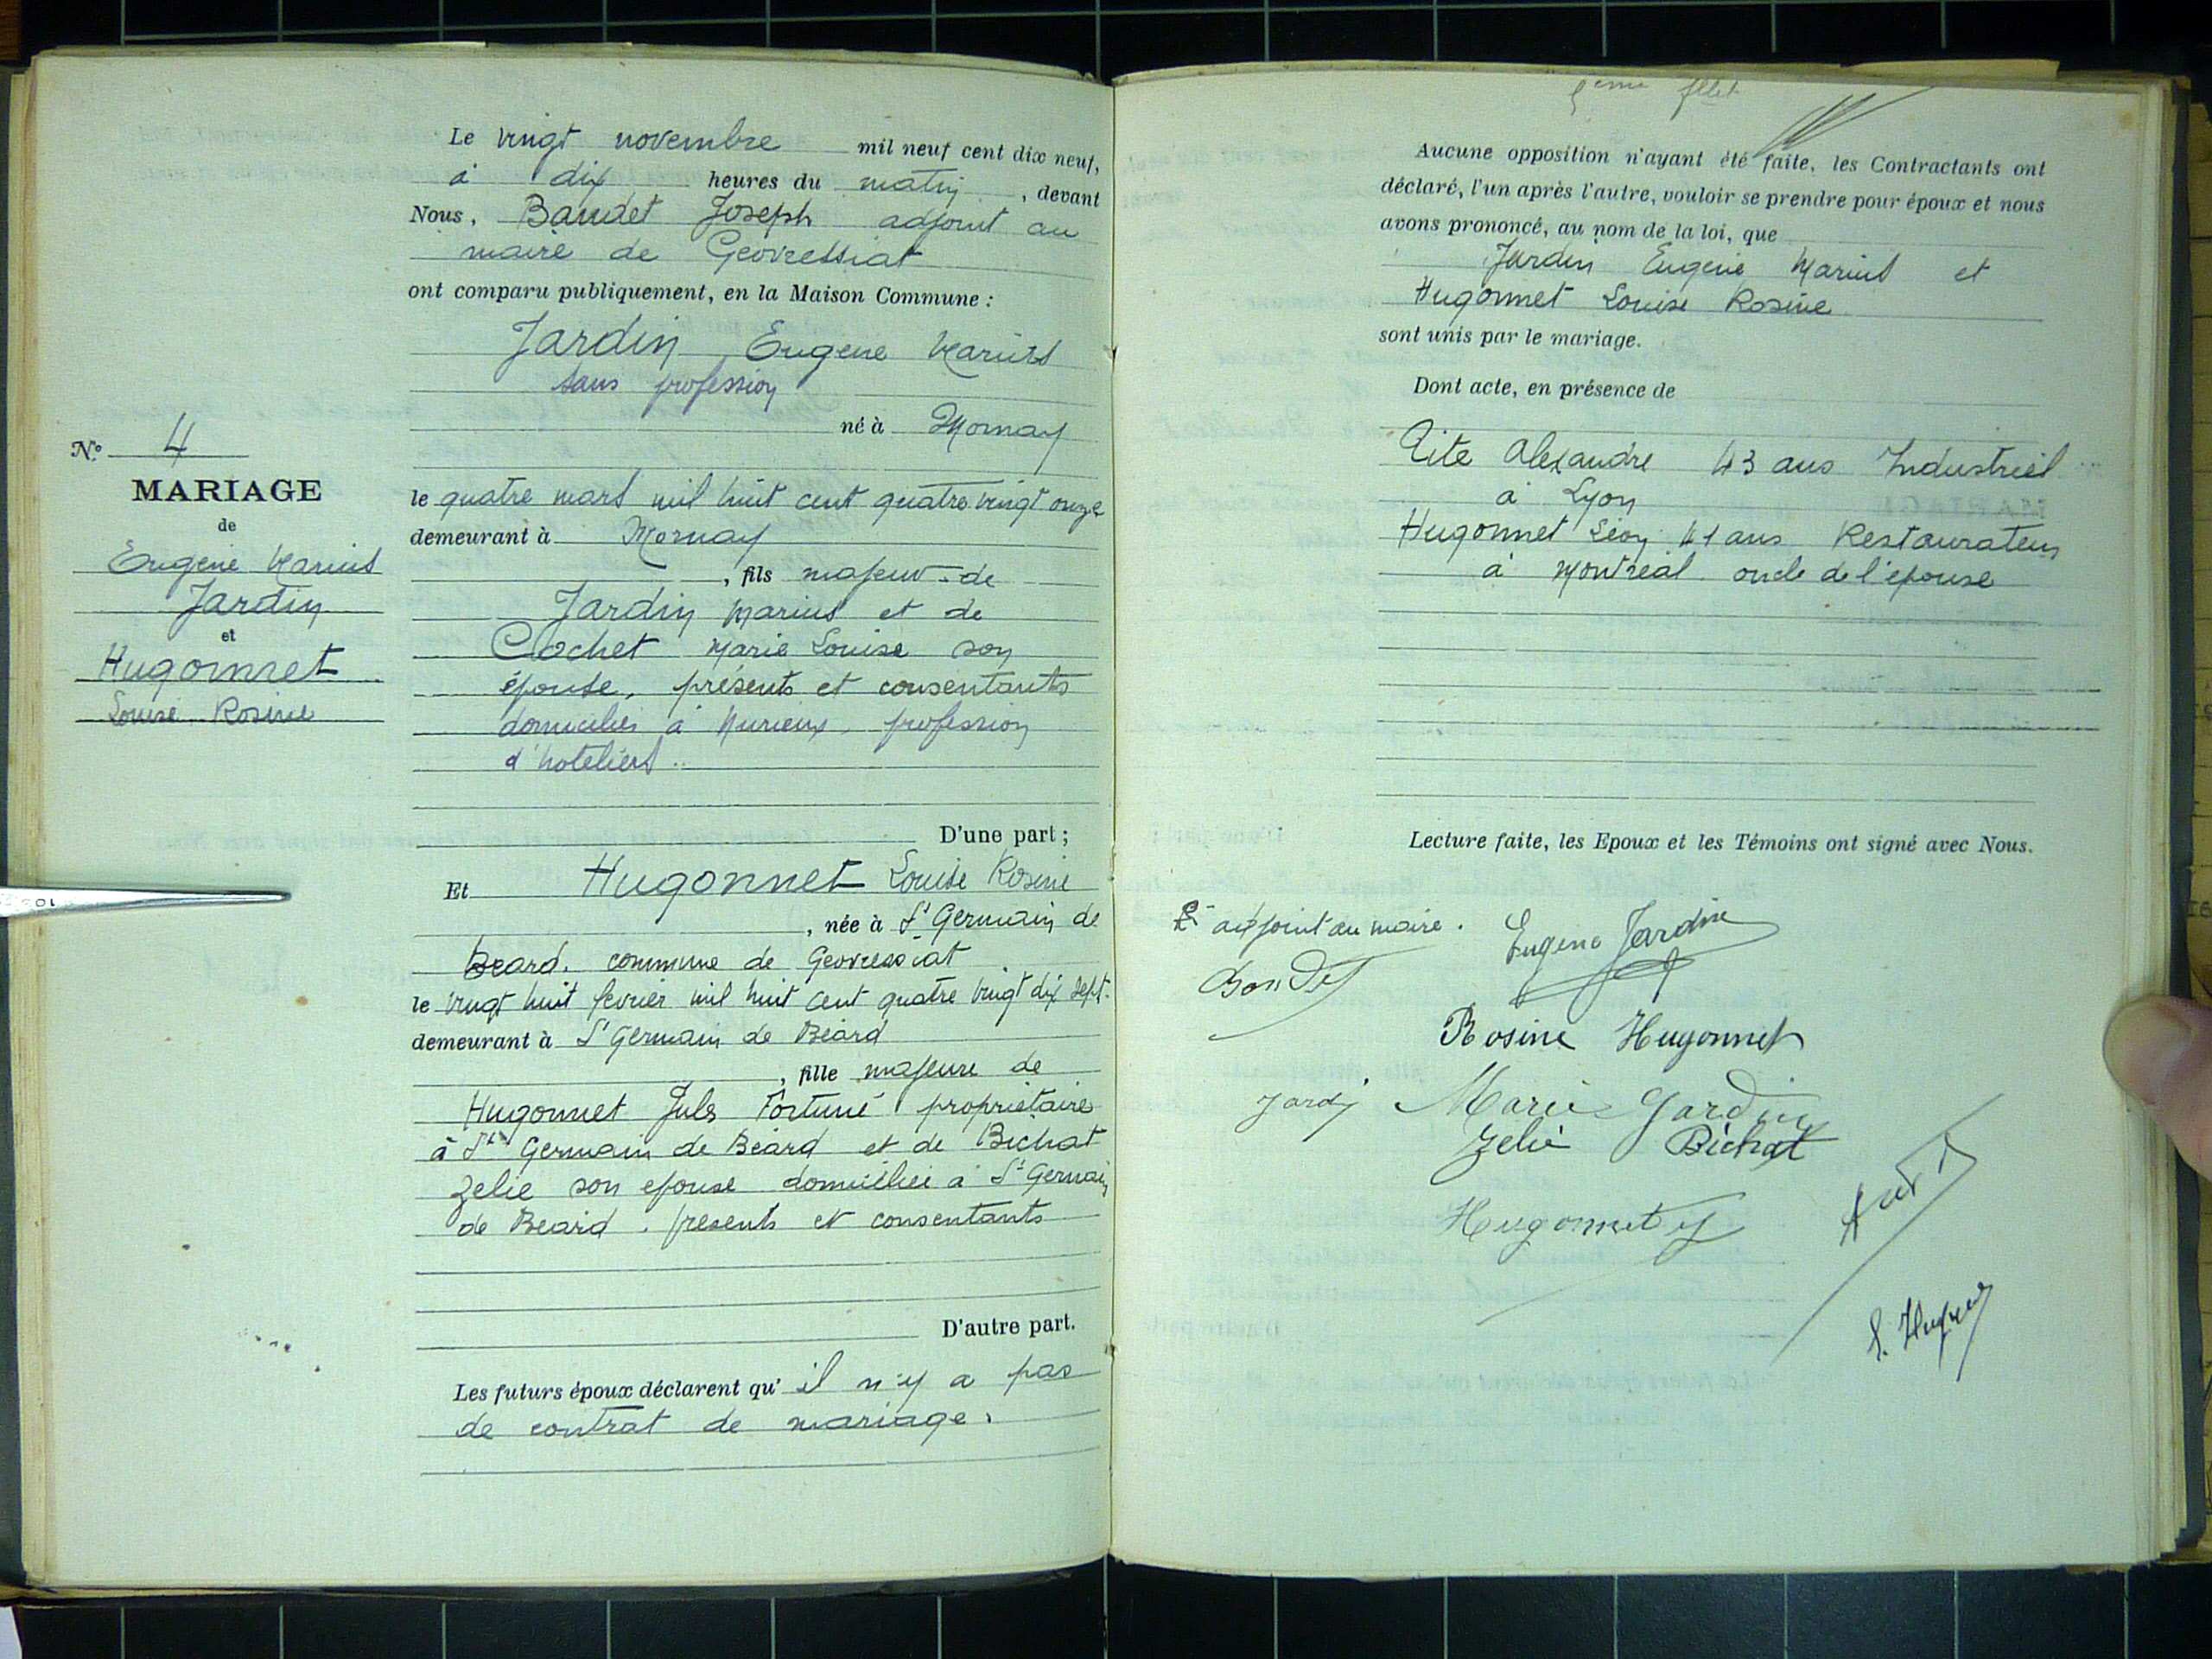 Le vingt novembre mil neuf cent dix neuf,
à dix heures du matin, devant
Nous, Baudet Joseph adjoint au
maire de Geovressiat
ont comparu publiquement, en la Maison Commune :
Jardin Eugene Marius
sans profession
né à Mornay
le quatre mars mil huit cent quatre vingt onze
demeurant à Mornay
, fils majeur de
Jardin Marius et de
Cochet Marie Louise son
épouse, présents et consentants
domiciliés à Nurieux, profession
d'hoteliers.
D'une part ;
N° 4
MARIAGE
de
Eugene Marius
Jardin
et
Hugonnet
Louise Rosine
Et Hugonnet Louise Rosine
, née à St Germain de
Beard, commune de Geovressiat
le vingt huit fevrier mil huit cent quatre vingt dix sept.
demeurant à St Germain de Béard
, fille majeure de
Hugonnet Jules Fortuné propriétaire
à St Germain de Béard et de Bichat
Zelie son epouse domiciliés à St Germain
de Beard. presents et consentants
D'autre part.
Les futurs époux déclarent qu' il n'y a pas
de contrat de mariage.
Aucune opposition n'ayant été faite, les Contractants ont
déclaré, l'un après l'autre, vouloir se prendre pour époux et nous
avons prononcé, au nom de la loi, que
Jardin Eugene Marius et
Hugonnet Louise Rosine
sont unis par le mariage.
Dont acte, en présence de
Tite Alexandre 43 ans Industriel
à Lyon
Hugonnet Léon 41 ans Restaurateur
à Montreal oncle de l'épouse
Lecture faite, les Epoux et les Témoins ont signé avec Nous.
adjoint au maire.
Eugene Jardin
Rosine Hugonnet
Jardin Marie Jardin
Zelie Bichat
Hugonnet